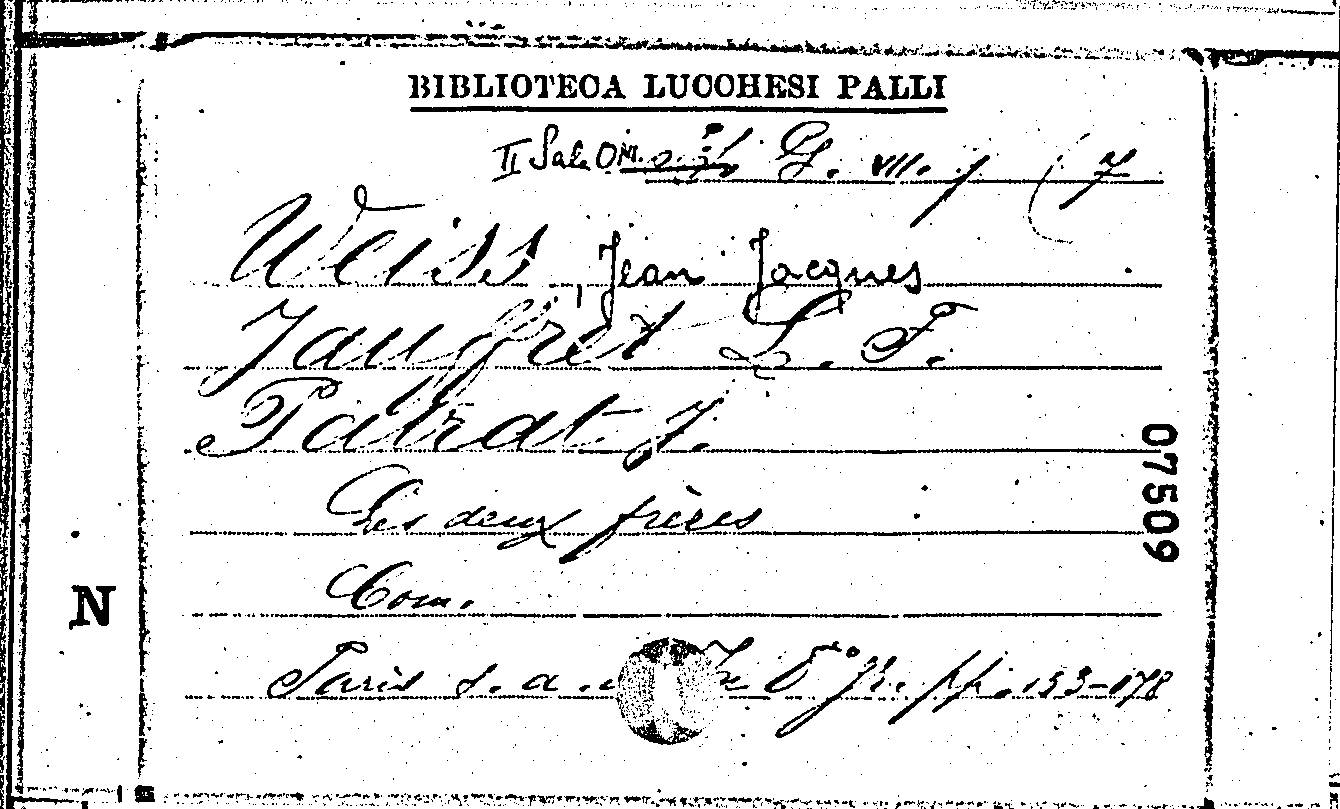 BIBLIOTECA LUCCHESI PALLI
II Sala G. VII. 7
Weiss, Jean Jacques
Jauffret L. F.
Patrat J.
Les deux frères
Com.
Paris s. a. In 8° gr. pp. 153-178
07509
N